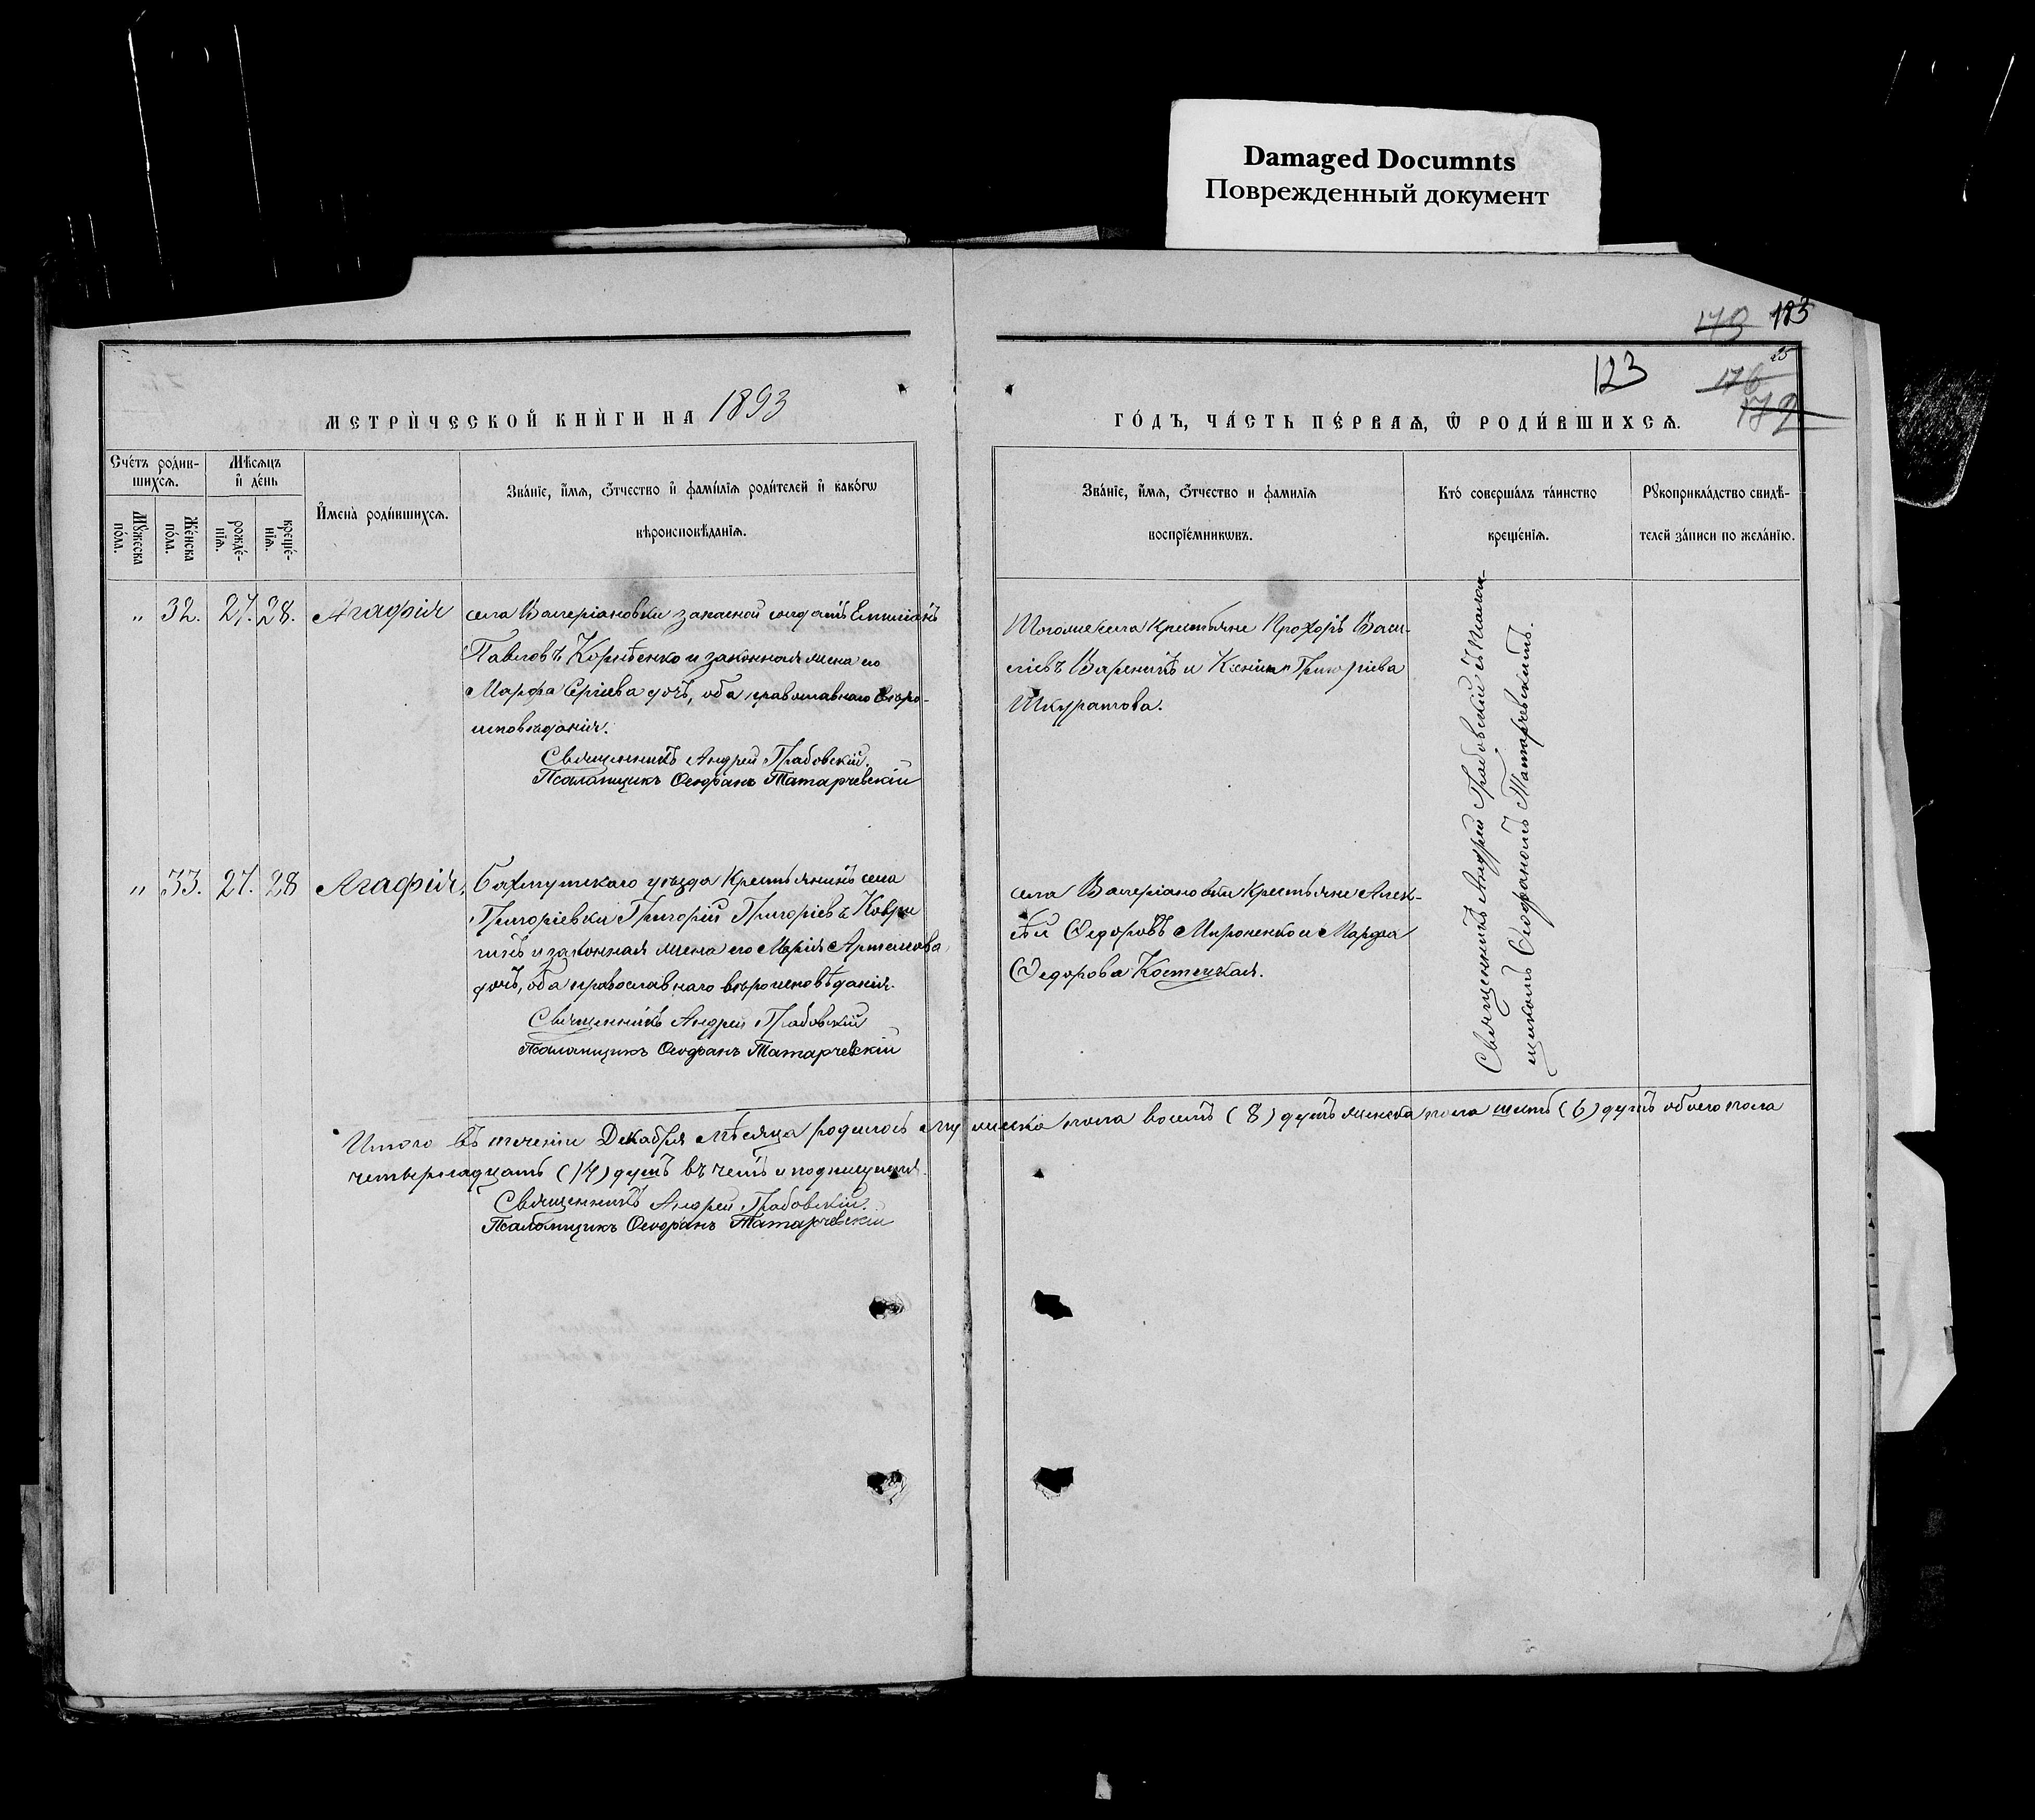 Damaged Documnts
Поврежденный документ
173 183
123
25
176
179
МЕТРИ́ЧЕСКОЙ КНИ́ГИ НА 1893
ГО́ДЪ, ЧА́СТЬ ПЕ́РВАѦ, Ѿ РОДИ́ВШИХСѦ.
Сче́тъ роди́в-
шихсѧ.
Мꙋ́жеска по́ла.
Же́нска по́ла.
Мѣ́сѧцъ
и҆ де́нь
рожде́-
нїѧ.
креще́-
нїѧ.
И҆мена̀ роди́вшихсѧ.
Зва́нїе, и҆́мѧ, ѻ҆́тчество и҆ фамѝлїѧ роди́телей и҆ како́гѡ
вѣроисповѣ́данїѧ.
Зва́нїе, и҆́мѧ, ѻ҆́тчество и фамилїѧ
воспрїе́мникѡвъ.
Кто́ соверша́лъ та́инство
креще́нїѧ.
Рꙋкоприкла́дство свидѣ́-
телей за́писи по жела́нїю.
" 32. 27. 28. Агафія
села Валеріановки запасной солдатъ Емиліанъ
Павловъ Корнѣенко и законная жена его
Марфа Сергіева дочь, оба православнаго вѣро-
исповѣданія.
Священникъ Андрей Грабовскій.
Псаломщикъ Ѳеофанъ Татарчевскій
Тогоже села крестьяне Прохоръ Васи-
ліевъ Вареникъ и Ксенія Григоріева
Шкуратова.
Священникъ Андрей Грабовскій съ Псалом-
щикомъ Ѳеофаномъ Татарчевскимъ.
" 33. 27. 28 Агафія,
Бахмутскаго уѣзда Крестьянинъ села
Григоріевки Григорій Григоріевъ Коври
гинъ и законная жена его Марія Артемова
дочь, оба православнаго вѣроисповѣданія.
Священникъ Андрей Грабовскій
Псаломщикъ Ѳеофанъ Татарчевскій
села Валеріановки Крестьяне Алек-
сѣй Ѳедоровъ Мироненко и Марфа
Ѳедорова Костецкая.
Итого въ теченіи Декабря мѣсяца родилось мужеска пола восемь (8) душъ женска пола шесть (6) душъ обоего пола
четырнадцать (14) душъ въ чемъ и подпишемся.
Священникъ Андрей Грабовскій.
Псаломщикъ Ѳеофанъ Татарчевскій